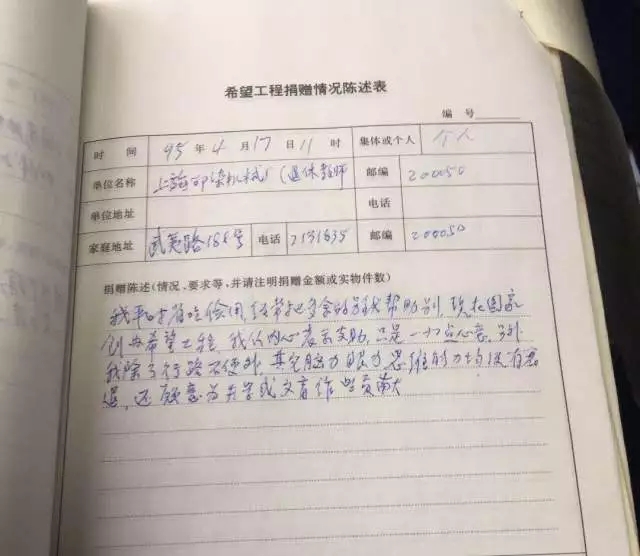 希望工程捐赠情况陈述表
编号
时间 95年4月17日11时 集体或个人 个人
单位名称 上海印染机械厂(退休教师 邮编 200050
单位地址 电话
家庭地址 武夷路188号 电话 2131635 邮编 200050
捐赠陈述(情况、要求等,并请注明捐赠金额或实物件数)
我平时省吃俭用,经常把多余的钱帮助别,现在国家
创办希望工程,我从内心表示支助,只是一小点心意,另外
我除了行路不便外,其它脑力眼力思维能力均没有衰
退,还愿意为失学或文盲作些贡献